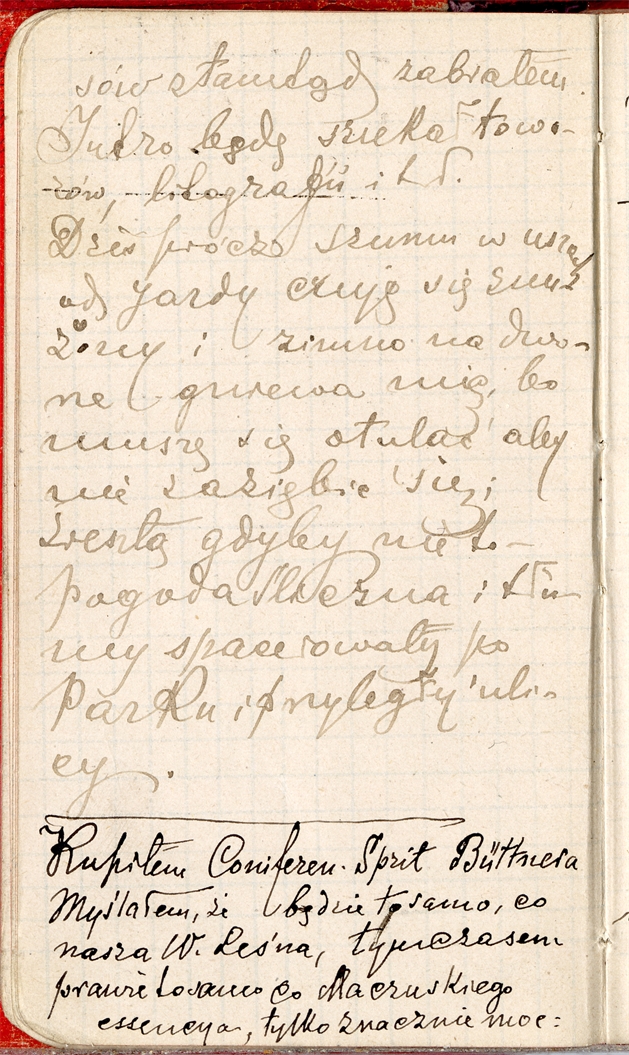 sów stamtąd zabrałem.
Jutro będę szukał towa-
rów, litografii i t d.
Dziś prócz szumu w usza
od jazdy czuję się znu-
żony i zimno na dwo-
rze gniewa mię, bo
muszę się otulać aby
nie zaziębić się;
zresztą gdyby nie to -
pogoda śliczna i tłu-
my spacerowały po
Parku i przyległy uli-
cy.
Kupiłem Coniferen-Sprit Büttnera
Myślałem, że będzie to samo, co
nasza W. Leśna, tymczasem
prawie to samo co Maczuskiego
essencya, tylko znacznie moc=